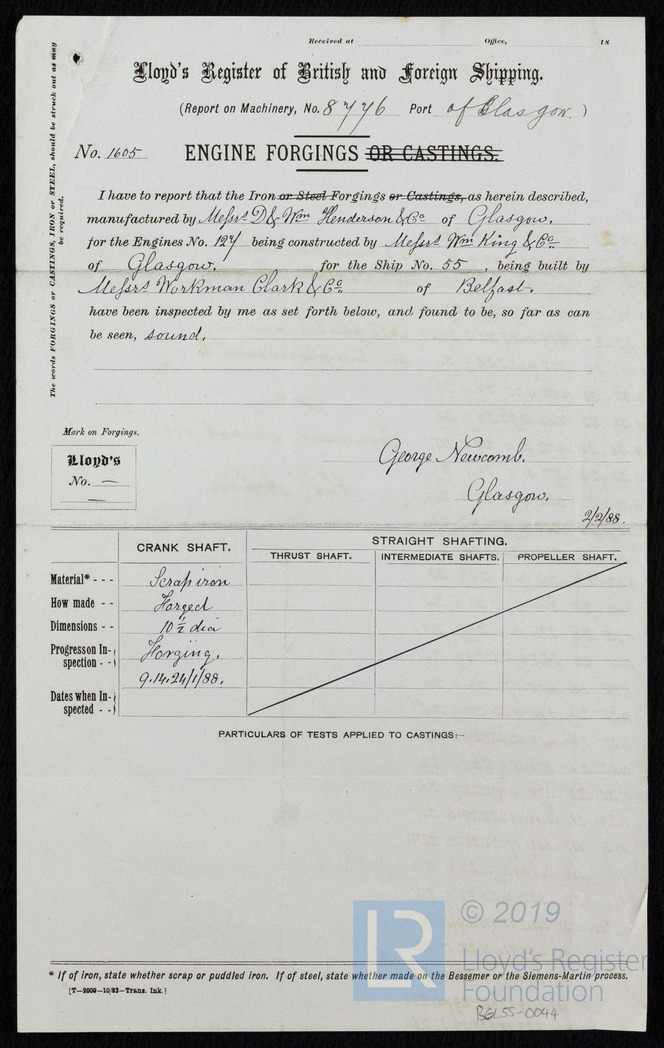 Received at Office, 18
Lloyd's Register of British and Foreign Shipping.
(Report on Machinery, No. 8776 Port of Glasgow.)
No. 1605 ENGINE FORGINGS OR CASTINGS.
I have to report that the Iron or Steel Forgings or Castings, as herein described,
manufactured by Messrs D & Wm Henderson & Co of Glasgow.
for the Engines No. 127 being constructed by Messrs Wm King & Co.
of Glasgow. for the Ship No. 55, being built by
Messrs Workman Clark & Co. of Belfast.
have been inspected by me as set forth below, and found to be, so far as can
be seen, sound.
The words FORGINGS or CASTINGS, IRON or STEEL, should be struck out as may
be required.
Mark on Forgings.
Lloyd's
No. —
—
George Newcomb.
Glasgow.
2/2/88.
CRANK SHAFT. STRAIGHT SHAFTING.
THRUST SHAFT. INTERMEDIATE SHAFTS. PROPELLER SHAFT.
Material* - - - Scrap iron
How made - - Forged
Dimensions - - 10 1/2 dia
Progress on In-
spection - - Forging.
9.14.24/1/88.
Dates when In-
spected - -
PARTICULARS OF TESTS APPLIED TO CASTINGS:—
* If of iron, state whether scrap or puddled iron. If of steel, state whether made on the Bessemer or the Siemens-Martin process.
(T—2000—10/83—Trans. Ink.)
LR © 2019
Lloyd's Register
Foundation
BEL55-0044